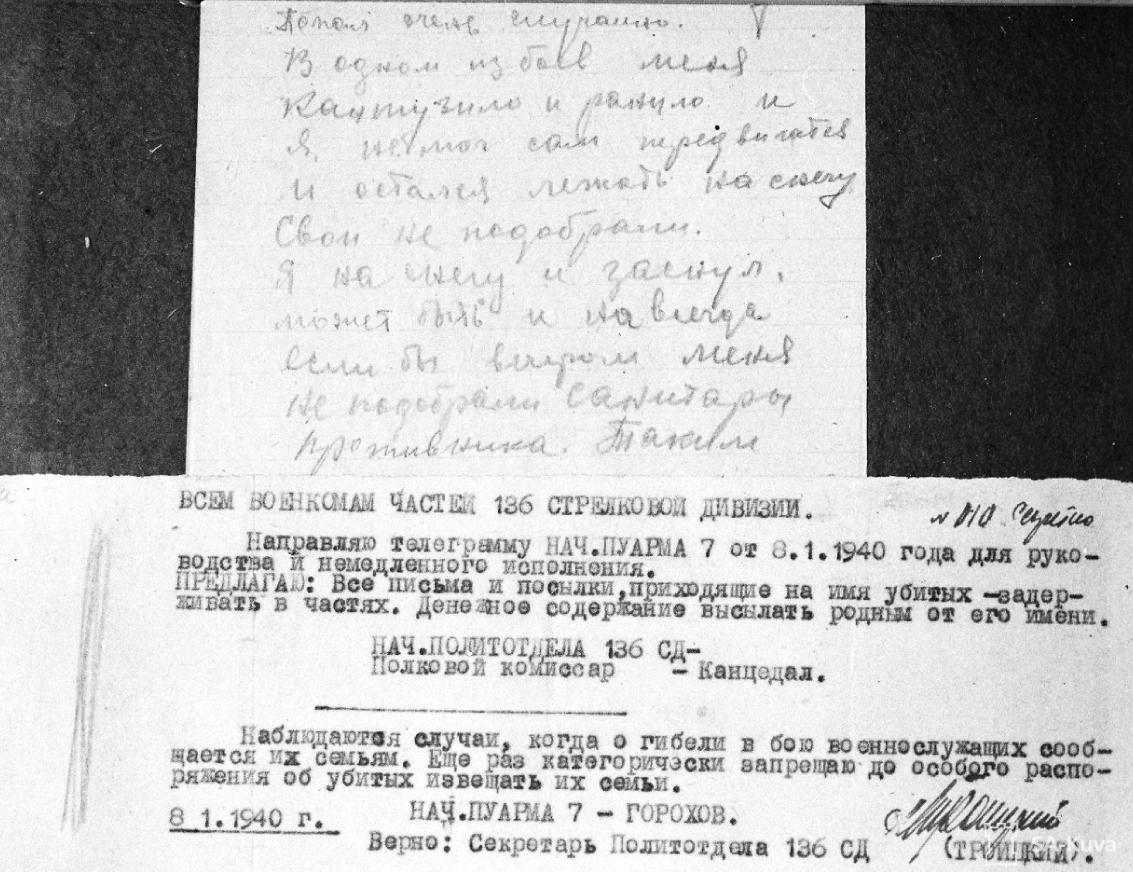 Попал очень случайно.
В одном из боев меня
Контузило и ранило и
Я, не мог сам передвигатся
и остался лежать на снегу
Свои не подобрали.
Я на снегу и заснул,
может быть и навсегда
если бы вечером меня
не подобрали санитары
противника. Таким
ВСЕМ ВОЕНКОМАМ ЧАСТЕЙ 136 СТРЕЛКОВОЙ ДИВИЗИИ.
№ 010 Секретно
Направляю телеграмму НАЧ.ПУАРМА 7 от 8.1.1940 года для руко-
водства и немедленного исполнения.
ПРЕДЛАГАЮ: Все письма и посылки,приходящие на имя убитых -задер-
живать в частях. Денежное содержание высылать родным от его имени.
НАЧ.ПОЛИТОТДЕЛА 136 СД-
Полковой комиссар - Канцедал.
Наблюдаются случаи, когда о гибели в бою военнослужащих сооб-
щается их семьям. Еще раз категорически запрещаю до особого распо-
ряжения об убитых извещать их семьи.
8 1.1940 г. НАЧ.ПУАРМА 7 - ГОРОХОВ.
Верно: Секретарь Политотдела 136 СД (ТРОИЦКИЙ).
SA-kuva